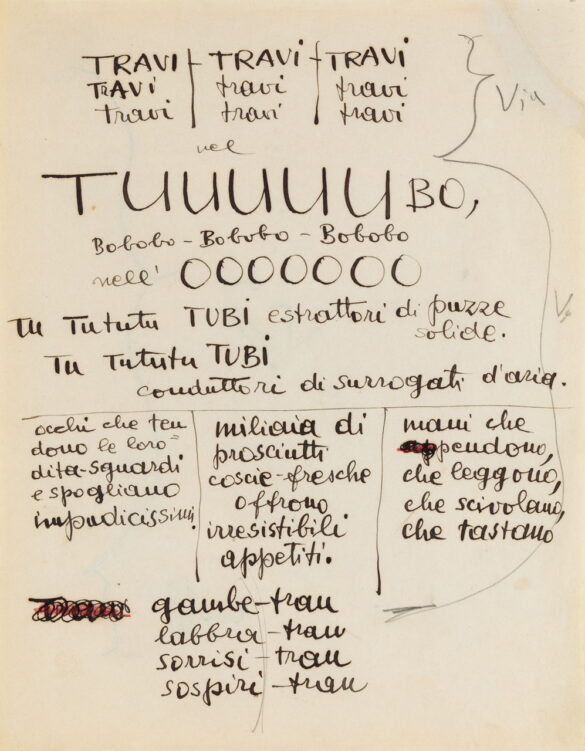 TRAVI TRAVI TRAVI
TRAVI travi travi
travi travi travi
Via
nel
TUUUUUUBO,
Bobobo - Bobobo - Bobobo
nell' OOOOOOO
Tu Tututu TUBI estrattori di puzze
solide.
Tu Tututu TUBI
conduttori di surrogati d'aria.
occhi che ten
dono le loro
dita-sguardi
e spogliano
impudicissimi
miliaia di
prosciutti
coscie-fresche
offrono
irresistibili
appetiti.
mani che
pendono,
che leggono,
che scivolano,
che tastano
gambe-tran
labbra-tran
sorrisi-tran
sospiri-tran